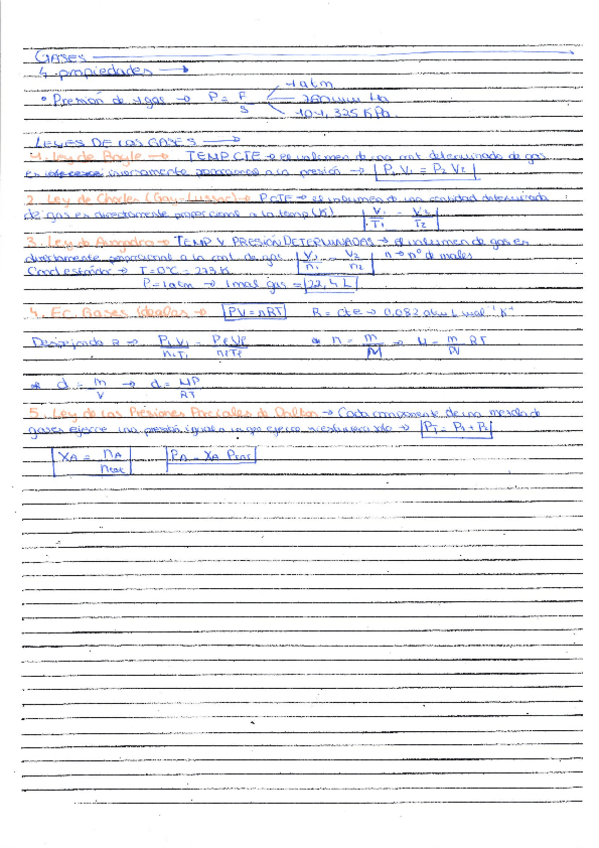 GASES
4 propiedades →
• Presión de 1 gas → P = F/S → 1 atm
760 mm Hg
101,325 KPa
LEYES DE LOS GASES →
1. Ley de Boyle → TEMP CTE → el volumen de una cant determinada de gas
es inversamente proporcional a la presión → P1 V1 = P2 V2
2. Ley de Charles (Gay-Lussac) → P CTE → el volumen de una cantidad determinada
de gas es directamente proporcional a la temp (K) V1/T1 = V2/T2
3. Ley de Avogadro → TEMP Y PRESIÓN DETERMINADAS → el volumen de gas es
directamente proporcional a la cant de gas V1/n1 = V2/n2 n → nº de moles
Cond estándar → T = 0°C = 273 K
P = 1 atm → 1 mol gas = 22,4 L
4. EC. Gases Ideales → PV = nRT R = cte → 0.082 atm L mol⁻¹ K⁻¹
R → P1V1/n1T1 = P2V2/n2T2 n = m/M →
d = m/V → d = MP/RT
5. Ley de las Presiones Parciales de Dalton → Cada componente de una mezcla de
gases ejerce una presión igual a la que ejerce si estuviera solo → PT = P1 + P2
XA = nA/ntot PA = XA Ptot